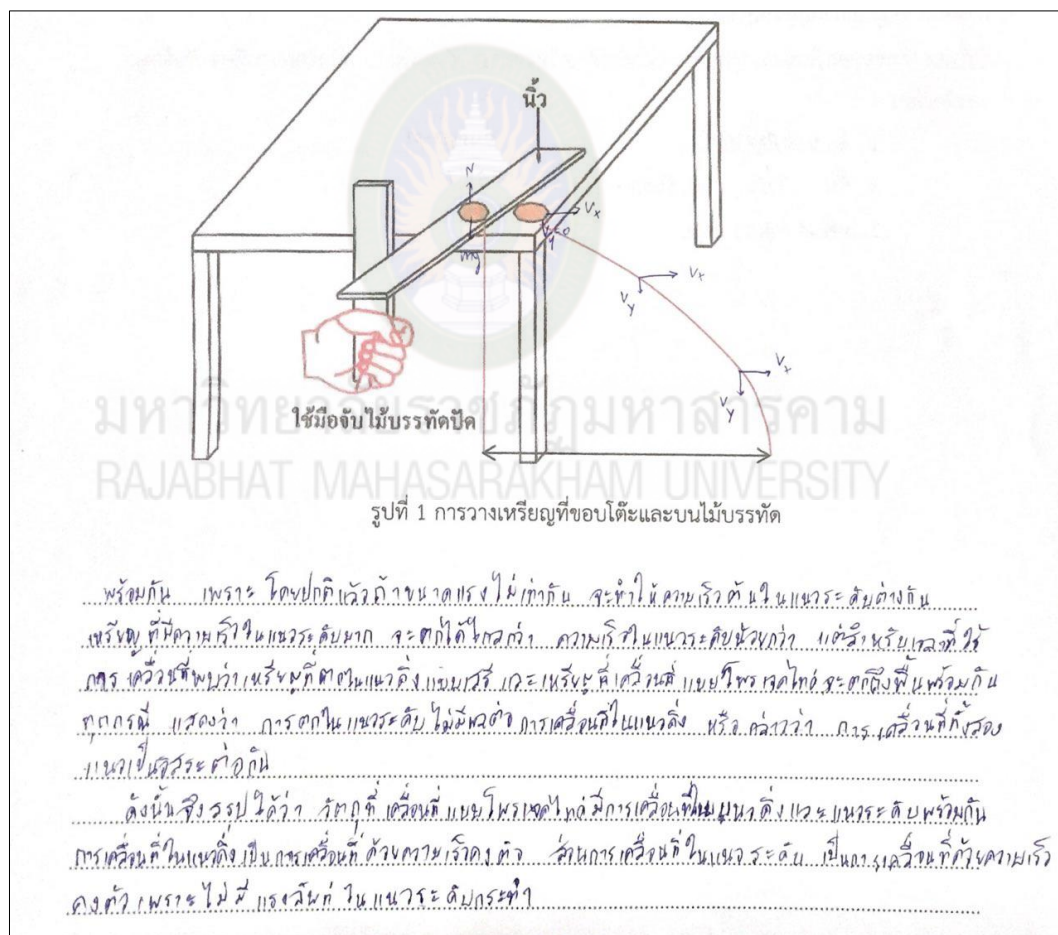 นิ้ว
N
Vx
Vy=0
mg
Vx
Vy
Vx
Vy
ใช้มือจับไม้บรรทัดปัด
มหาวิทยาลัยราชภัฏมหาสารคาม
RAJABHAT MAHASARAKHAM UNIVERSITY
รูปที่ 1 การวางเหรียญที่ขอบโต๊ะและบนไม้บรรทัด
พร้อมกัน เพราะ โดยปกติแล้วถ้าขนาดแรงไม่เท่ากัน จะทำให้ความเร็วต้นในแนวระดับต่างกัน
เหรียญที่มีความเร็วในแนวระดับมาก จะตกได้ไกลกว่า ความเร็วในแนวระดับน้อยกว่า แต่สำหรับเวลาที่ใช้
การเคลื่อนที่พบว่าเหรียญที่ตกในแนวดิ่งแบบเสรี และเหรียญที่เคลื่อนที่แบบโพรเจคไทล์จะตกถึงพื้นพร้อมกัน
ทุกกรณี แสดงว่า การตกในแนวระดับไม่มีผลต่อการเคลื่อนที่ในแนวดิ่ง หรือกล่าวว่า การเคลื่อนที่ทั้งสอง
แนวเป็นอิสระต่อกัน
ดังนั้นจึงสรุปได้ว่า วัตถุที่เคลื่อนที่แบบโพรเจคไทล์มีการเคลื่อนที่ในแนวดิ่งและแนวระดับพร้อมกัน
การเคลื่อนที่ในแนวดิ่งเป็นการเคลื่อนที่ด้วยความเร็วคงตัว ส่วนการเคลื่อนที่ในแนวระดับ เป็นการเคลื่อนที่ด้วยความเร็ว
คงตัวเพราะไม่มีแรงลัพธ์ในแนวระดับกระทำ